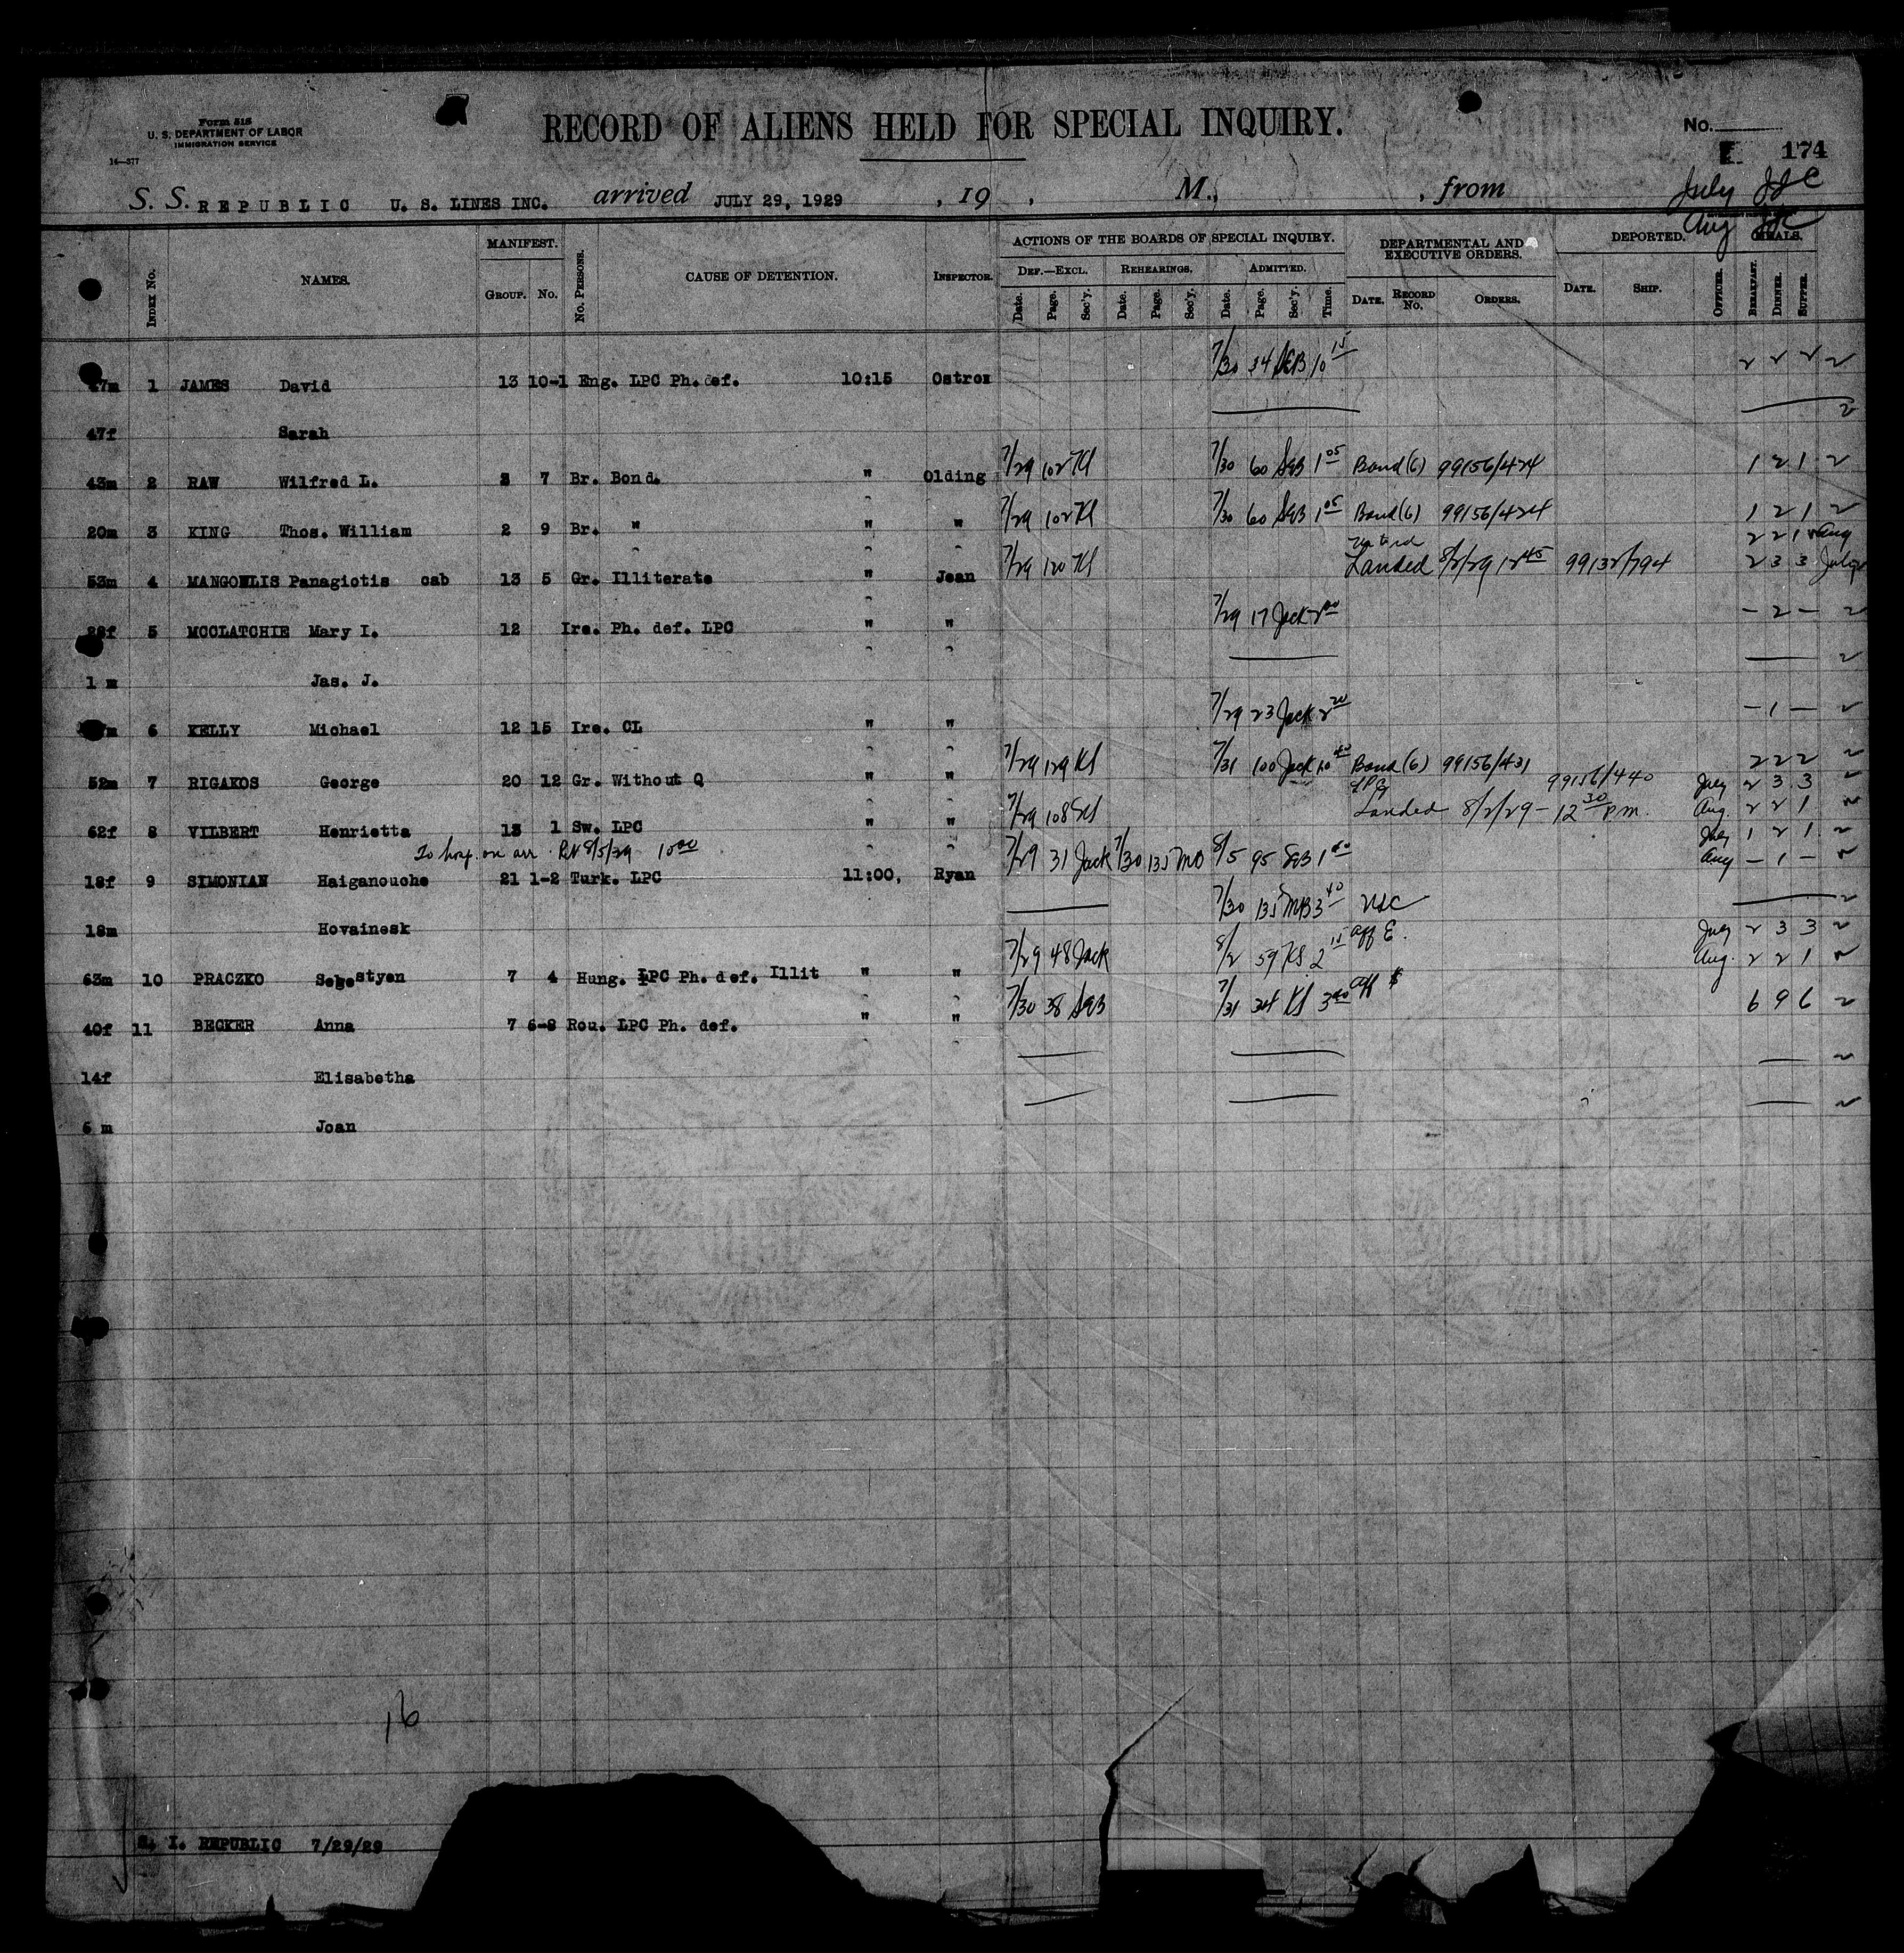 Form 515
U. S. DEPARTMENT OF LABOR
IMMIGRATION SERVICE
14—377
RECORD OF ALIENS HELD FOR SPECIAL INQUIRY.
No.
174
S. S. REPUBLIC U. S. LINES INC. arrived JULY 29, 1929 , 19 , M., , from
July JJC
Aug JJC
INDEX No. NAMES. MANIFEST. GROUP. No. No. PERSONS. CAUSE OF DETENTION. INSPECTOR. ACTIONS OF THE BOARDS OF SPECIAL INQUIRY. DEF.—EXCL. Date. Page. Sec'y. REHEARINGS. Date. Page. Sec'y. ADMITTED. Date. Page. Sec'y. Time. DEPARTMENTAL AND EXECUTIVE ORDERS. DATE. RECORD No. ORDERS. DEPORTED. DATE. SHIP. OFFICER. MEALS. BREAKFAST. DINNER. SUPPER.
7/30 34 SEB 10 15 2 2 2 2
47m 1 JAMES David 13 10-1 Eng. LPC Ph. def. 10:15 Ostrow
2
47f Sarah
7/29 102 KS 7/30 60 SEB 1 05 Bond (6) 99156/424 1 2 1 2
43m 2 RAW Wilfred L. 7 Br. Bond. " Olding
7/29 102 KS 7/30 60 SEB 1 05 Bond (6) 99156/424 1 2 1 2
20m 3 KING Thos. William 2 9 Br. " " "
2 2 1 Aug
7/29 120 KS Landed 8/2/29 12 45 99132/794 2 3 3 July
53m 4 MANGOULIS Panagiotis cab 13 5 Gr. Illiterate " Jean
7/29 17 Jack 2 00 - 2 - 2
28f 5 MCCLATCHIE Mary I. 12 Ire. Ph. def. LPC " "
2
1 m Jas. J.
7/29 23 Jack 2 20 - 1 - 2
m 6 KELLY Michael 12 15 Ire. CL " "
7/29 129 KS 7/31 100 Jack 10 40 Bond (6) 99156/431 2 2 2 2
52m 7 RIGAKOS George 20 12 Gr. Without Q " "
99156/440 July 2 3 3 2
7/29 108 KS Landed 8/2/29 - 12 30 P.m. Aug. 2 2 1 2
62f 8 VILBERT Henrietta 13 1 Sw. LPC " "
To hosp. on arr. Rel 8/5/29 10 00 July 1 2 1 2
7/29 31 Jack 7/30 135 MO 8/5 95 SEB 1 40 Aug - 1 - 2
18f 9 SIMONIAN Haiganouche 21 1-2 Turk. LPC 11:00, Ryan
7/30 135 MB 3 40 USC 2
18m Hovainesk
July 2 3 3 2
7/29 48 Jack 8/2 59 KS 2 15 aff E. Aug. 2 2 1 2
63m 10 PRACZKO Sebestyen 7 4 Hung. LPC Ph. def. Illit " "
7/30 38 SEB 7/31 34 KS 3 40 aff $ 6 9 6 2
40f 11 BECKER Anna 7 6-8 Rou. LPC Ph. def. " "
2
14f Elisabetha
2
6 m Joan
16
S. I. REPUBLIC 7/29/29